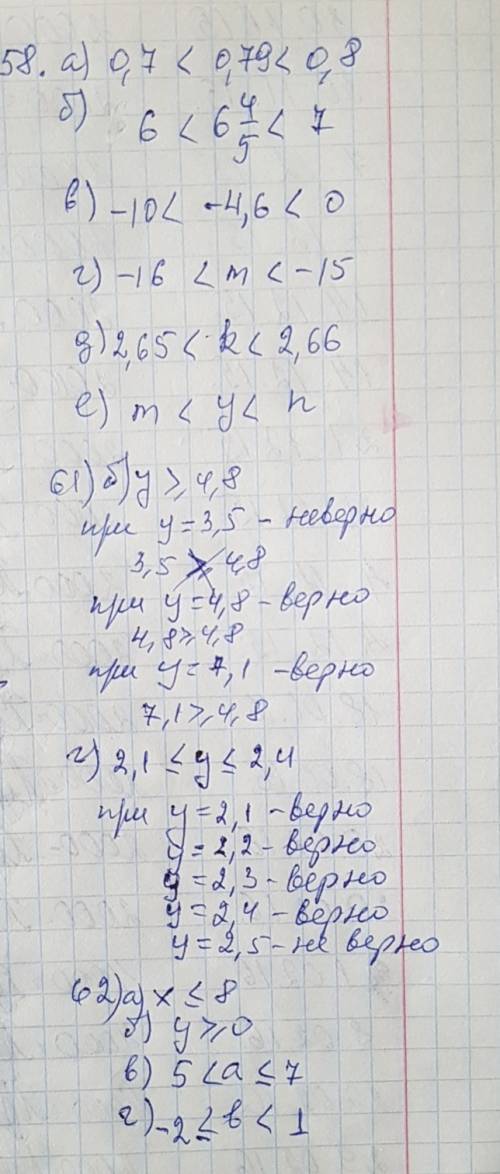 58. а) 0,7 < 0,79 < 0,8
б) 6 < 6 4/5 < 7
в) -10 < -4,6 < 0
г) -16 < m < -15
д) 2,65 < k < 2,66
е) m < y < n
61) б) y ⩾ 4,8
при y = 3,5 - неверно
3,5 ⩾ 4,8
при y = 4,8 - верно
4,8 ⩾ 4,8
при y = 7,1 - верно
7,1 ⩾ 4,8
г) 2,1 ≤ y ≤ 2,4
при y = 2,1 - верно
y = 2,2 - верно
y = 2,3 - верно
y = 2,4 - верно
y = 2,5 - не верно
62) а) x ≤ 8
б) y ⩾ 0
в) 5 < a ≤ 7
г) -2 ≤ b < 1